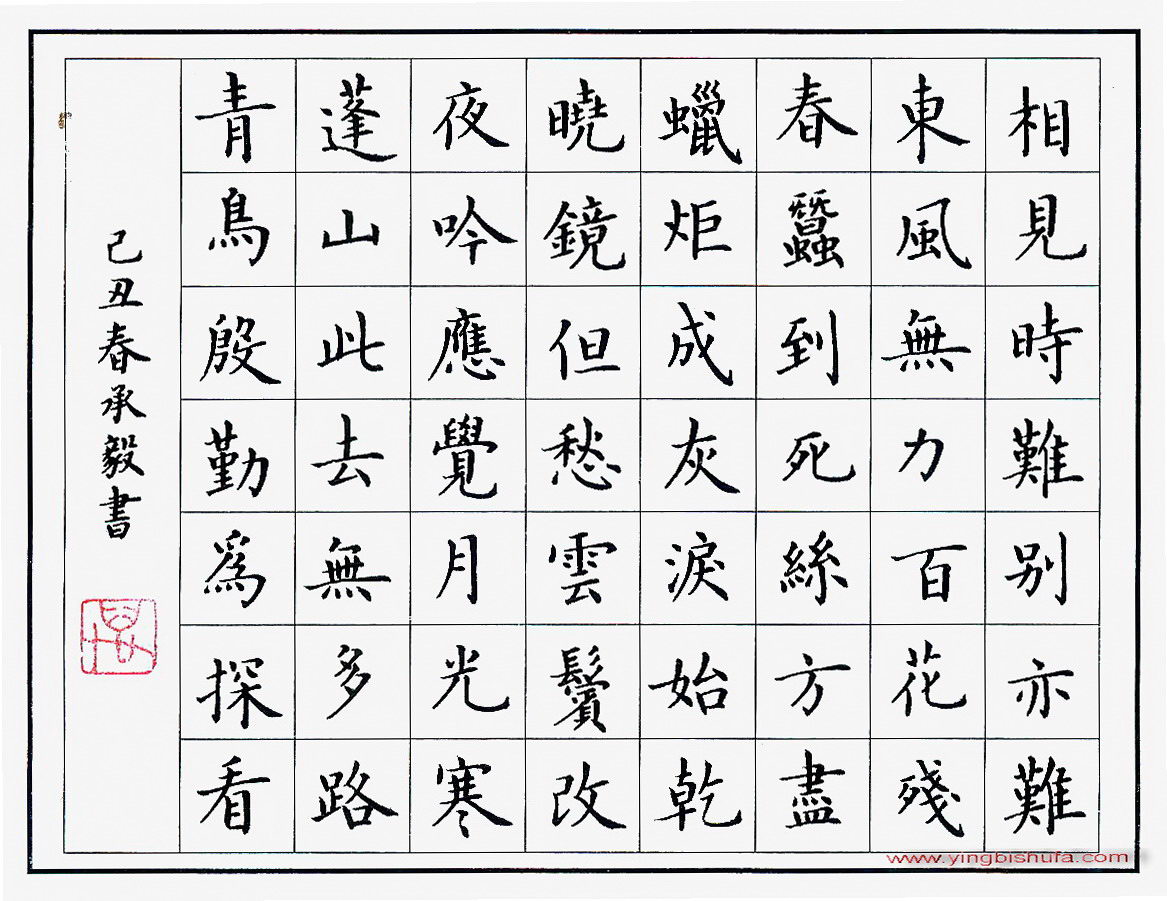 相見時難别亦難
東風無力百花殘
春蠶到死絲方盡
蠟炬成灰淚始乾
曉鏡但愁雲鬢改
夜吟應覺月光寒
蓬山此去無多路
青鳥殷勤爲探看
己丑春承毅書
www.yingbishufa.com